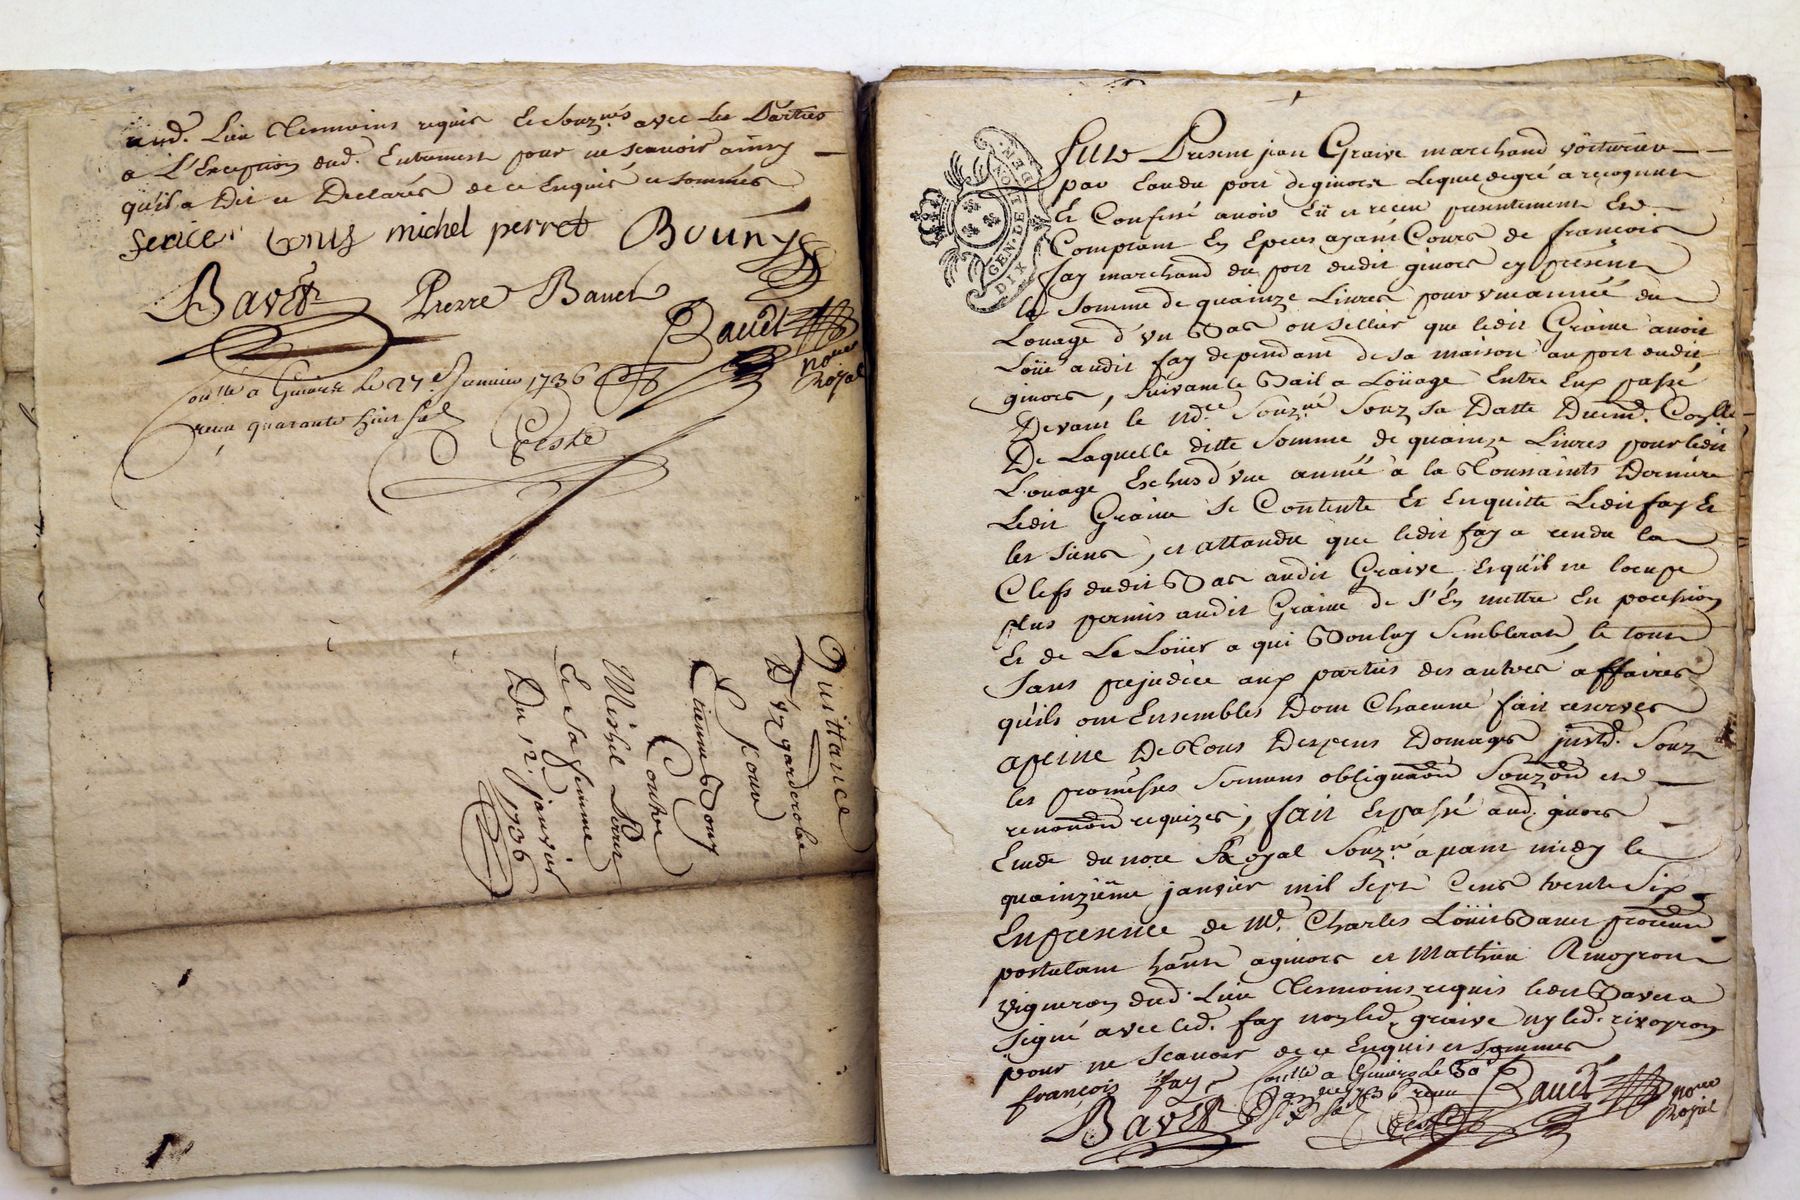 aud. Lieu Tesmoins requis et Souz.nés avec les Parties
a L'Exception dud. Entrement pour ne scavoir ainsy
quil a Dit et Declaré de ce Enquis et sommés
michel perret Bouny
Bavet Pierre Bauet
Bauet
no.re Royal
Con.llé a Guiers Le 27.e Janvier 1736
receu quarante huit s.
Quittance
D'un garderobe
Etienne Bouny
Contre
Michel Perret
Et Sa femme
Du 12.e janvier
1736
GEN. DE
DIX
Fut Present jean Graive marchand voiturier
par Eau du port de givors Lequel de gré a recognu
Et Confessé avoir Eü et receu presentement En
Comptant En Epeces ayant Cours de françois
fay marchand du port dudit givors cy present
la Somme de quainze Livres pour une année du
Louage d'un Bas ou sellier que ledit Graive avoit
Loüé audit fay dependant de sa maison au port dudit
givors, Suivant le Bail a Loüage Entre Eux passé
Devant le nd.re Souz.né Souz sa Datte Duemd. Co.llé
De Laquelle ditte Somme de quainze Livres pour ledit
Louage Eschus d'une année a la Toussaints Derniere
Ledit Graive se Contente Et En quitte Ledit fay Et
les siens, et attandu que ledit fay a rendu la
Clefs dudit Bas audit Graive, Et quil ne loccupe
plus permis audit Graive de s'En mettre En pocession
Et de Le Loüer a qui Bon luy Semblerat, le tout
Sans prejudice aux parties des autres affaires
quils ont Ensembles Dont Chacune fait reserves
apeine De Tous Despens Domages jnt.d. Souz
les promesses Sermens obligua.on Souz.on et
renon.on requizes, fait Et passé aud. givors
Etude du no.re Royal Souz.né auant midy le
quainziéme janvier mil sept Cens trente Six,
En presence de M.e Charles Loüis Bauet procureur
postulant haut a givors et Mathieu Rivoyron
vigneron dud. Lieu Tesmoins requis ledit Bavet a
signé avec led. fay non led. graive ny led. rivoyron
pour ne scavoir de ce Enquis et sommés
françois fay Con.llé a Givors le
Bavet Bauet
no.re Royal